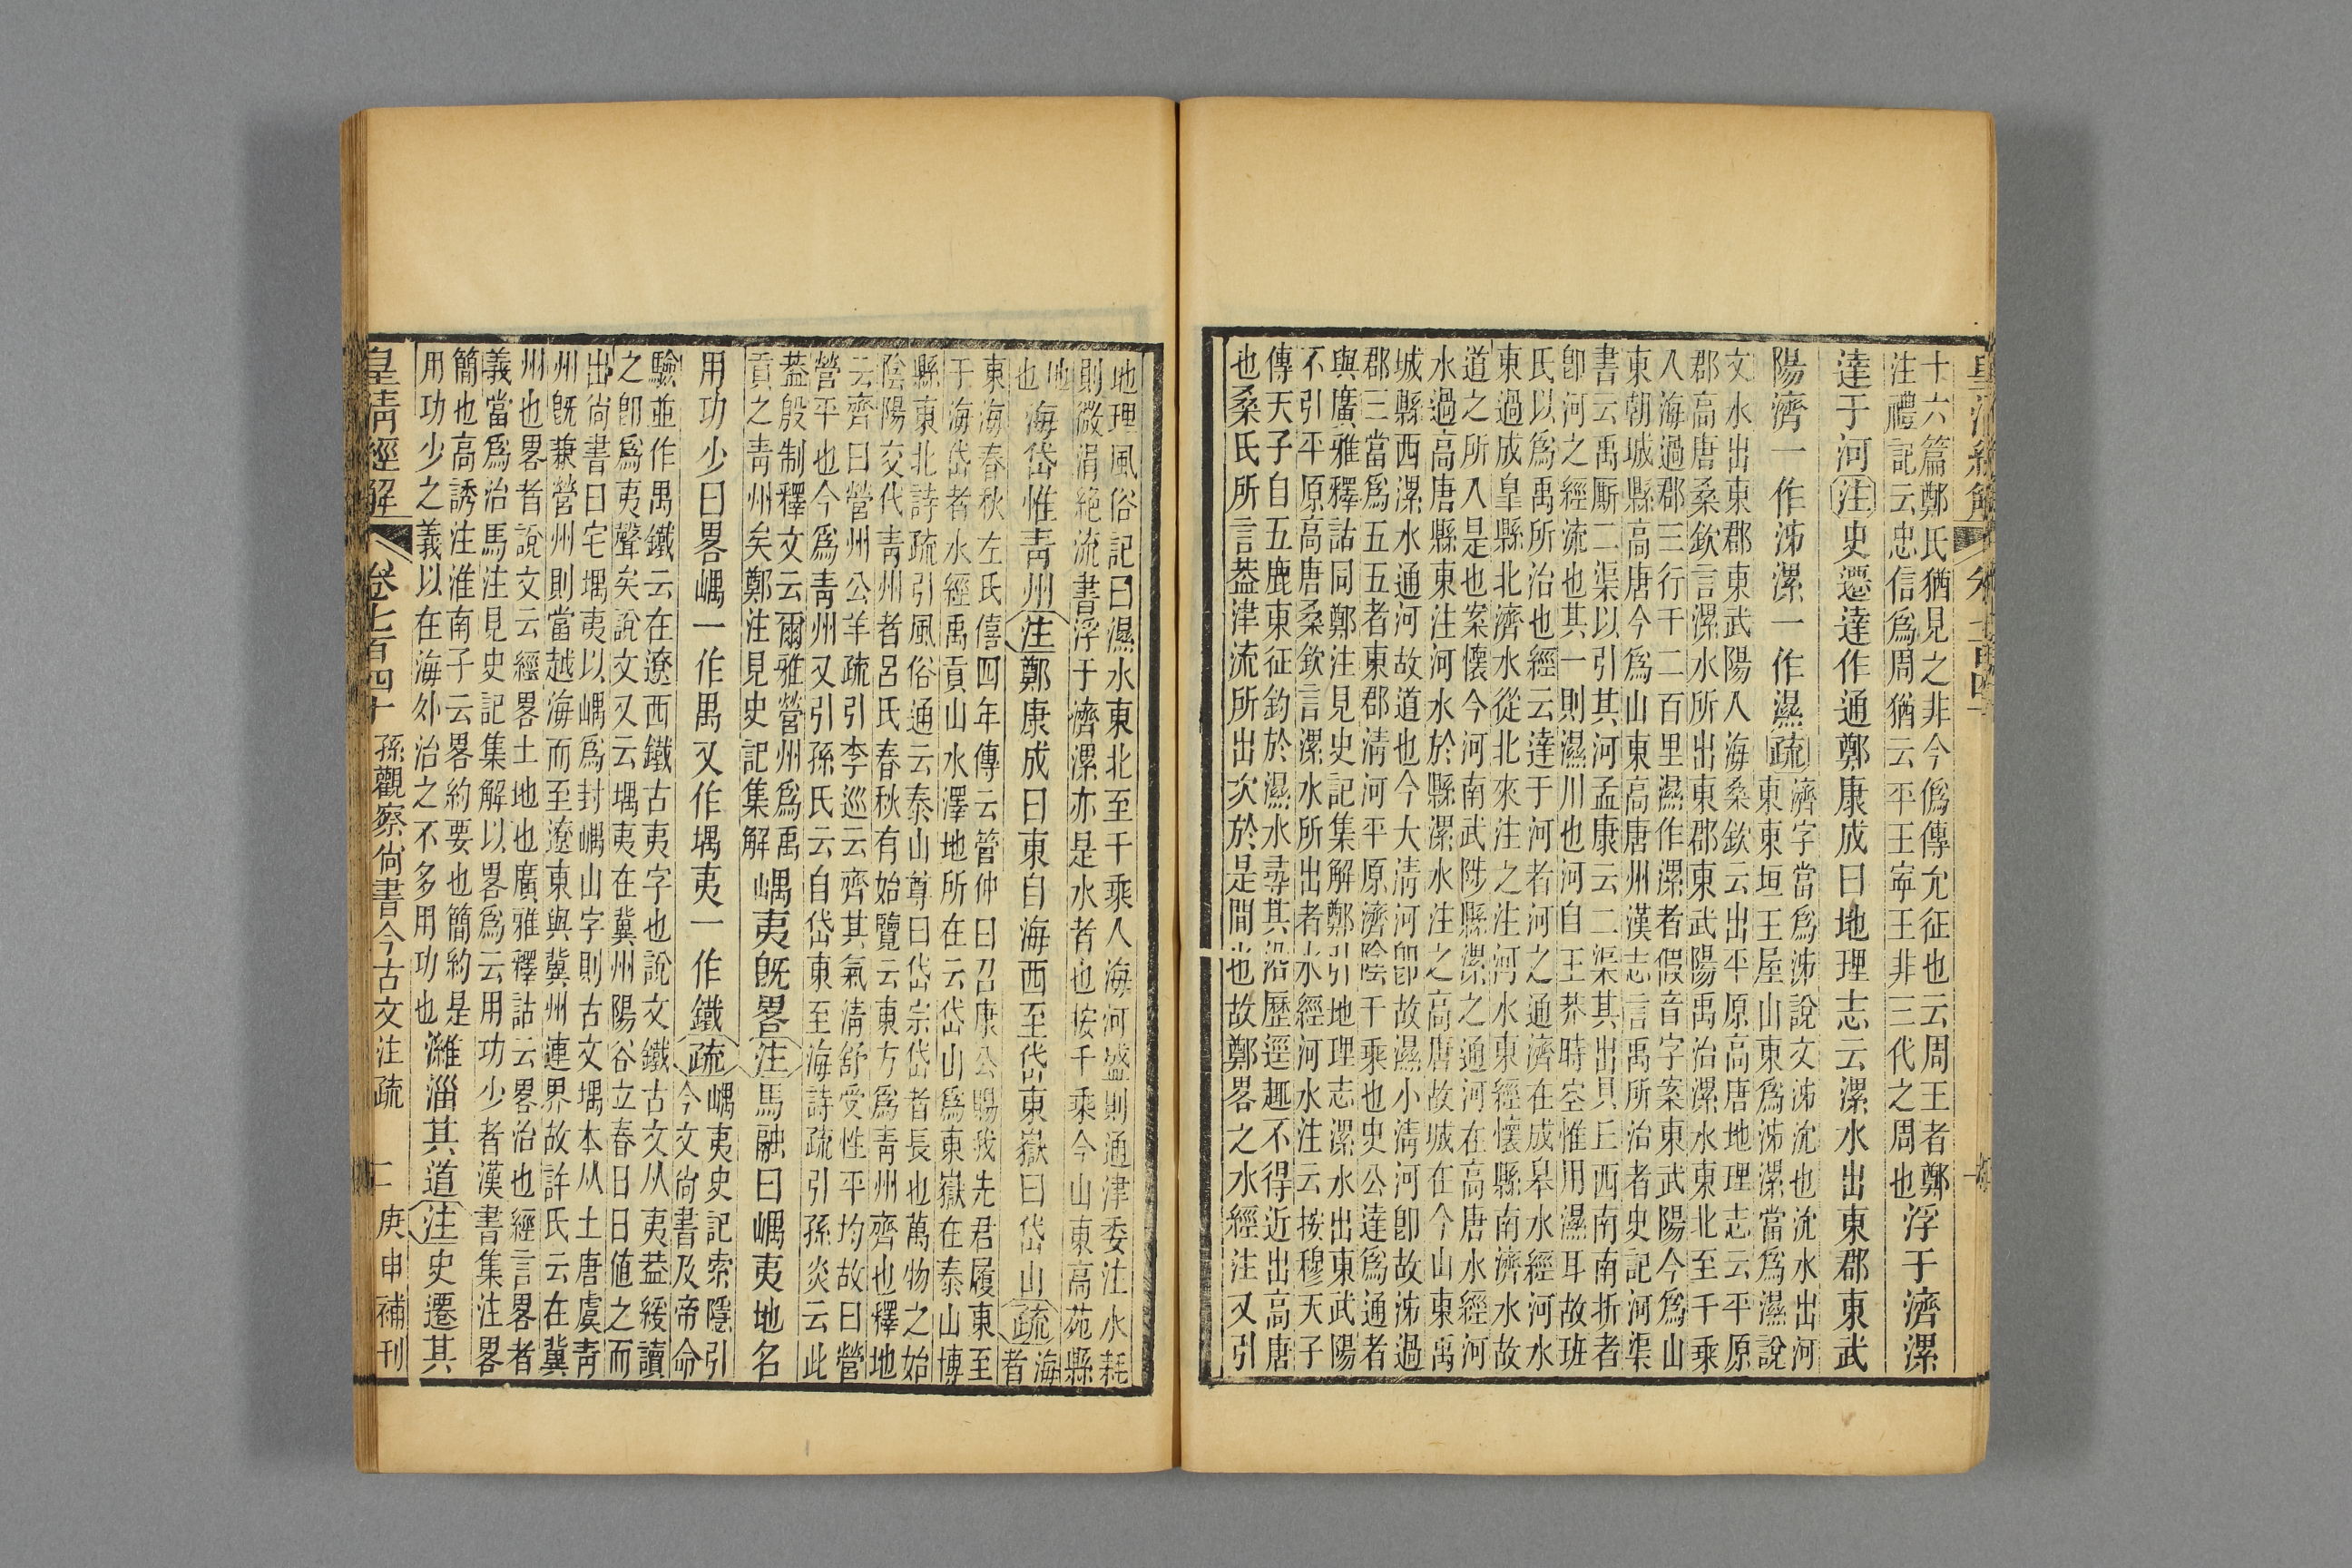 皇清經解
十六篇鄭氏猶見之非今僞傳允征也云周王者鄭
注禮記云忠信爲周猶云平王寧王非三代之周也
浮于濟漯
達于河注史遷達作通鄭康成曰地理志云漯水出東郡東武
陽濟一作泲漯一作濕疏
濟字當爲泲說文泲沇也沇水出河
東東垣王屋山東爲泲漯當爲濕說
文水出東郡東武陽入海桑欽云出平原高唐地理志云平原
郡高唐桑欽言漯水所出東郡東武陽禹治漯水東北至千乘
入海過郡三行千二百里濕作漯者假音字案東武陽今爲山
東朝城縣高唐今爲山東高唐州漢志言禹所治者史記河渠
書云禹厮二渠以引其河孟康云二渠其出貝丘西南南折者
卽河之經流也其一則濕川也河自王莽時空惟用濕耳故班
氏以爲禹所治也經云達于河者河之通濟在成皋水經河水
東過成皐縣北濟水從北來注之注河水東經懷縣南濟水故
道之所入是也案懷今河南武陟縣漯之通河在高唐水經河
水過高唐縣東注河水於縣漯水注之高唐故城在今山東禹
城縣西漯水通河故道也今大清河卽故濕小清河卽故泲過
郡三當爲五五者東郡清河平原濟陰千乘也史公達爲通者
與廣雅釋詁同鄭注見史記集解鄭引地理志漯水出東武陽
不引平原高唐桑欽言漯水所出者水經河水注云按穆天子
傳天子自五鹿東征釣於濕水尋其沿歷逕趣不得近出高唐
也桑氏所言葢津流所出次於是間也故鄭畧之水經注又引
地理風俗記曰濕水東北至千乘入海河盛則通津委注水耗
則微涓絶流書浮于濟漯亦是水者也按千乘今山東高苑縣
地
也
海岱惟靑州注鄭康成曰東自海西至岱東嶽曰岱山疏
海
者
東海春秋左氏僖四年傳云管仲曰召康公賜我先君履東至
于海岱者水經禹貢山水澤地所在云岱山爲東嶽在泰山博
縣東北詩疏引風俗通云泰山尊曰岱宗岱者長也萬物之始
陰陽交代靑州者呂氏春秋有始覽云東方爲靑州齊也釋地
云齊曰營州公羊疏引李巡云齊其氣清舒受性平均故曰營
營平也今爲靑州又引孫氏云自岱東至海詩疏引孫炎云此
葢殷制釋文云爾雅營州爲禹
貢之靑州矣鄭注見史記集解
嵎夷旣畧注馬融曰嵎夷地名
用功少曰畧嵎一作禺又作堣夷一作鐵疏
嵎夷史記索隱引
今文尙書及帝命
驗並作禺鐵云在遼西鐵古夷字也說文鐵古文从夷葢緩讀
之卽爲夷聲矣說文又云堣夷在冀州陽谷立春日日値之而
出尙書曰宅堣夷以嵎爲封嵎山字則古文堣本从土唐虞靑
州旣兼營州則當越海而至遼東與冀州連界故許氏云在冀
州也畧者說文云經畧土地也廣雅釋詁云畧治也經言畧者
義當爲治馬注見史記集解以畧爲云用功少者漢書集注畧
簡也高誘注淮南子云畧約要也簡約是
用功少之義以在海外治之不多用功也
濰淄其道注史遷其
皇清經解　卷七百四十　孫觀察尙書今古文注疏　二　庚申補刊